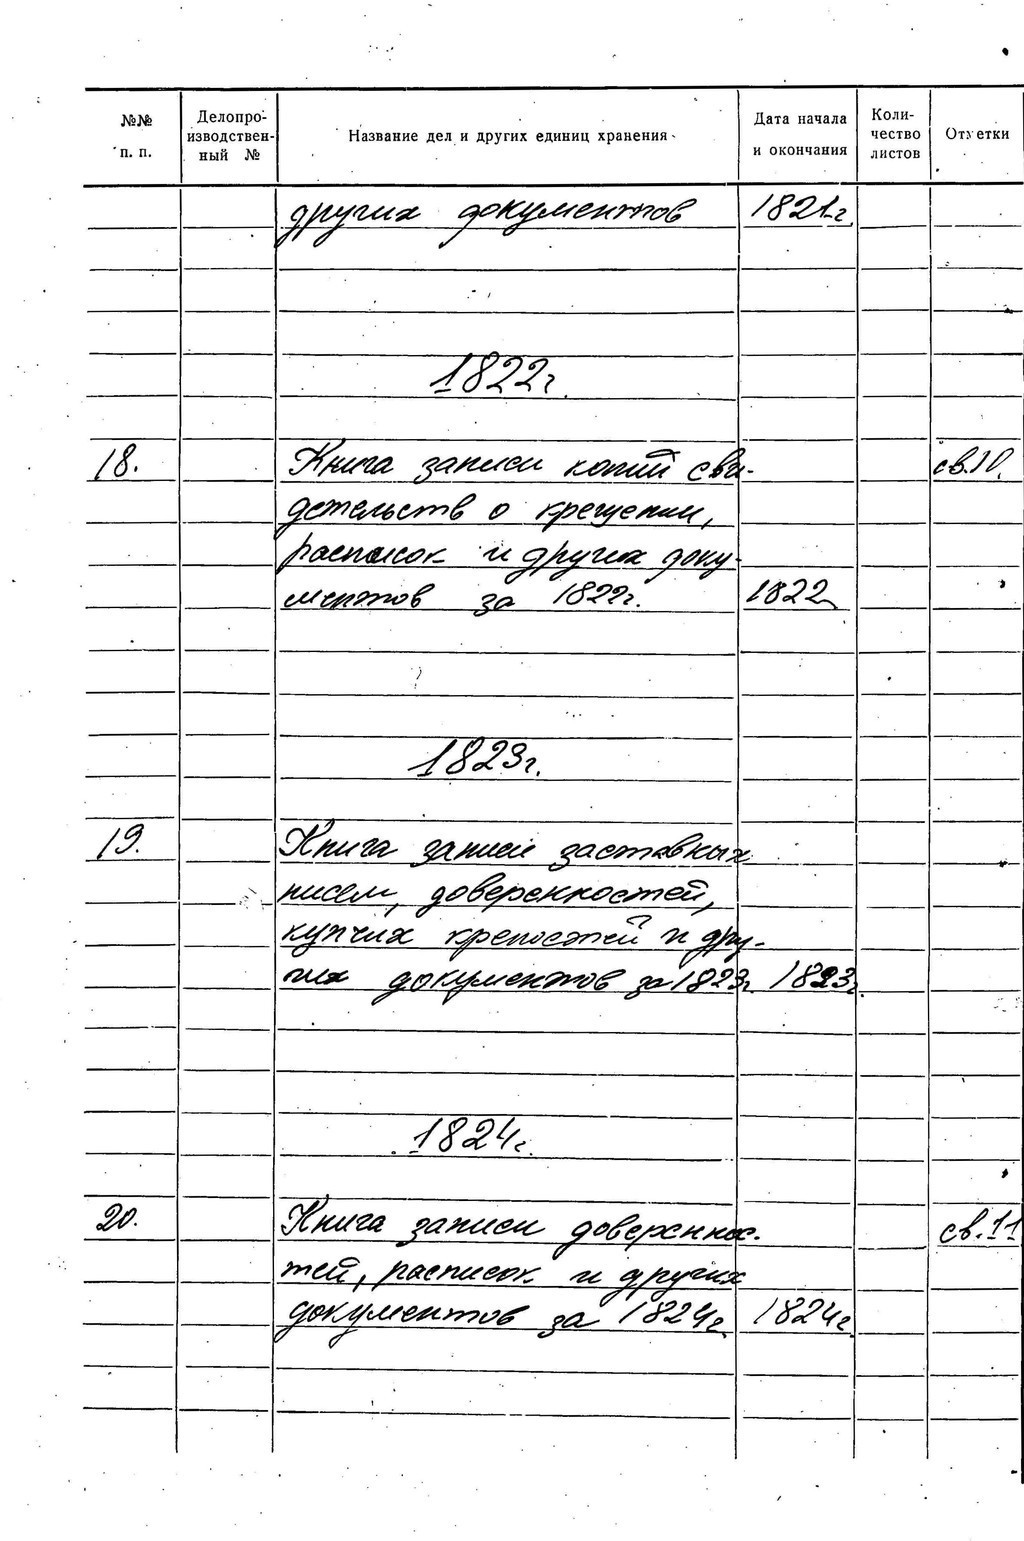 №№ п. п. Делопроизводственный № Название дел и других единиц хранения Дата начала и окончания Количество листов Отметки
других документов 1821г.
1822г.
18. Книга записи копий сви- св.10.
детельств о крещении,
расписок и других доку-
ментов за 1822г. 1822
1823г.
19. Книга записи заставных
писем, доверенностей,
купчих крепостей и дру-
гих документов за 1823г. 1823г.
1824г.
20. Книга записи довереннос- св.11
тей, расписок и других
документов за 1824г. 1824г.